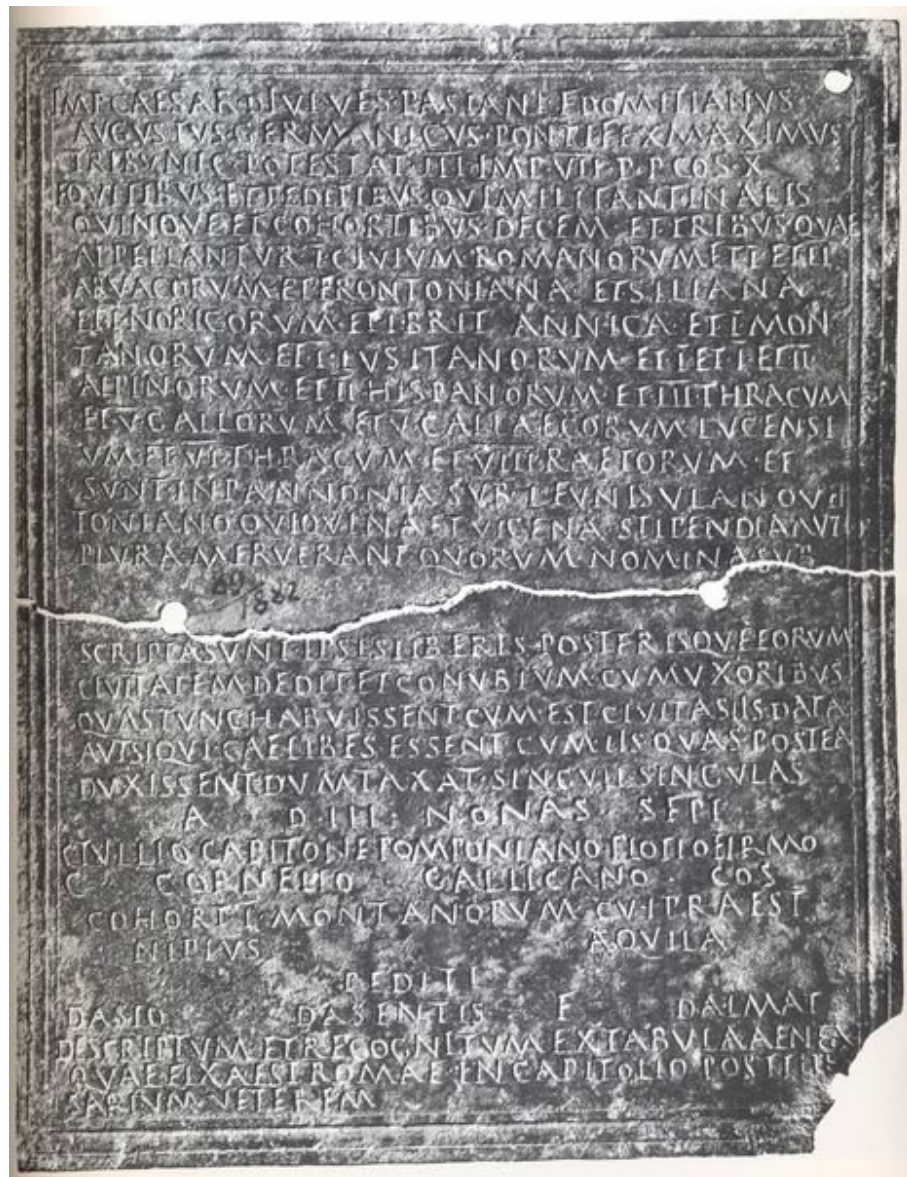 IMP·CAESAR·DIVI·VESPASIANI·F·DOMITIANVS
AVGVSTVS·GERMANICVS·PONTIFEX MAXIMVS
TRIBVNIC·POTESTAT·IIII·IMP·VII·P·P·COS·X
EQVITIBVS·ET PEDITIBVS·QVI MILITANT IN ALIS
QVINQVE ET COHORTIBVS DECEM ET TRIBVS QVAE
APPELLANTVR·I·CIVIVM·ROMANORVM ET I ET II
ARVACORVM ET FRONTONIANA ET SILIANA
ET I NORICORVM·ET I BRITANNICA·ET I MON
TANORVM ET I·LVSITANORVM·ET I ET I ET II
ALPINORVM·ET II HISPANORVM·ET III THRACVM
ET V·GALLORVM ET V CALLAECORVM LVCENSI
VM·ET VI THRACVM ET VIII RAETORVM·ET
SVNT IN PANNONIA SVB L FVNISVLANO VET
TONIANO QVI QVINA ET VICENA STIPENDIA AVT
PLVRA MERVERANT QVORVM NOMINA SVB
89/882
SCRIPTA SVNT IPSIS LIBERIS·POSTERISQVE EORVM
CIVITATEM DEDIT ET CONVBIVM CVM VXORIBVS
QVAS TVNC HABVISSENT CVM EST CIVITAS IIS DATA
AVT SI QVI CAELIBES ESSENT CVM IIS QVAS POSTEA
DVXISSENT DVMTAXAT SINGVLI SINGVLAS
A D III NONAS SEPT
C TVLLIO CAPITONE POMPONIANO PLOTIO FIRMO
C CORNELIO GALLICANO COS
COHORT I MONTANORVM CVI PRAEST
AQVILA
PEDITI
DASIO DASENTIS F DALMAT
DESCRIPTVM ET RECOGNITVM EX TABVLA AENEA
QVAE FIXA EST ROMAE IN CAPITOLIO POST THE
SARIVM VETEREM